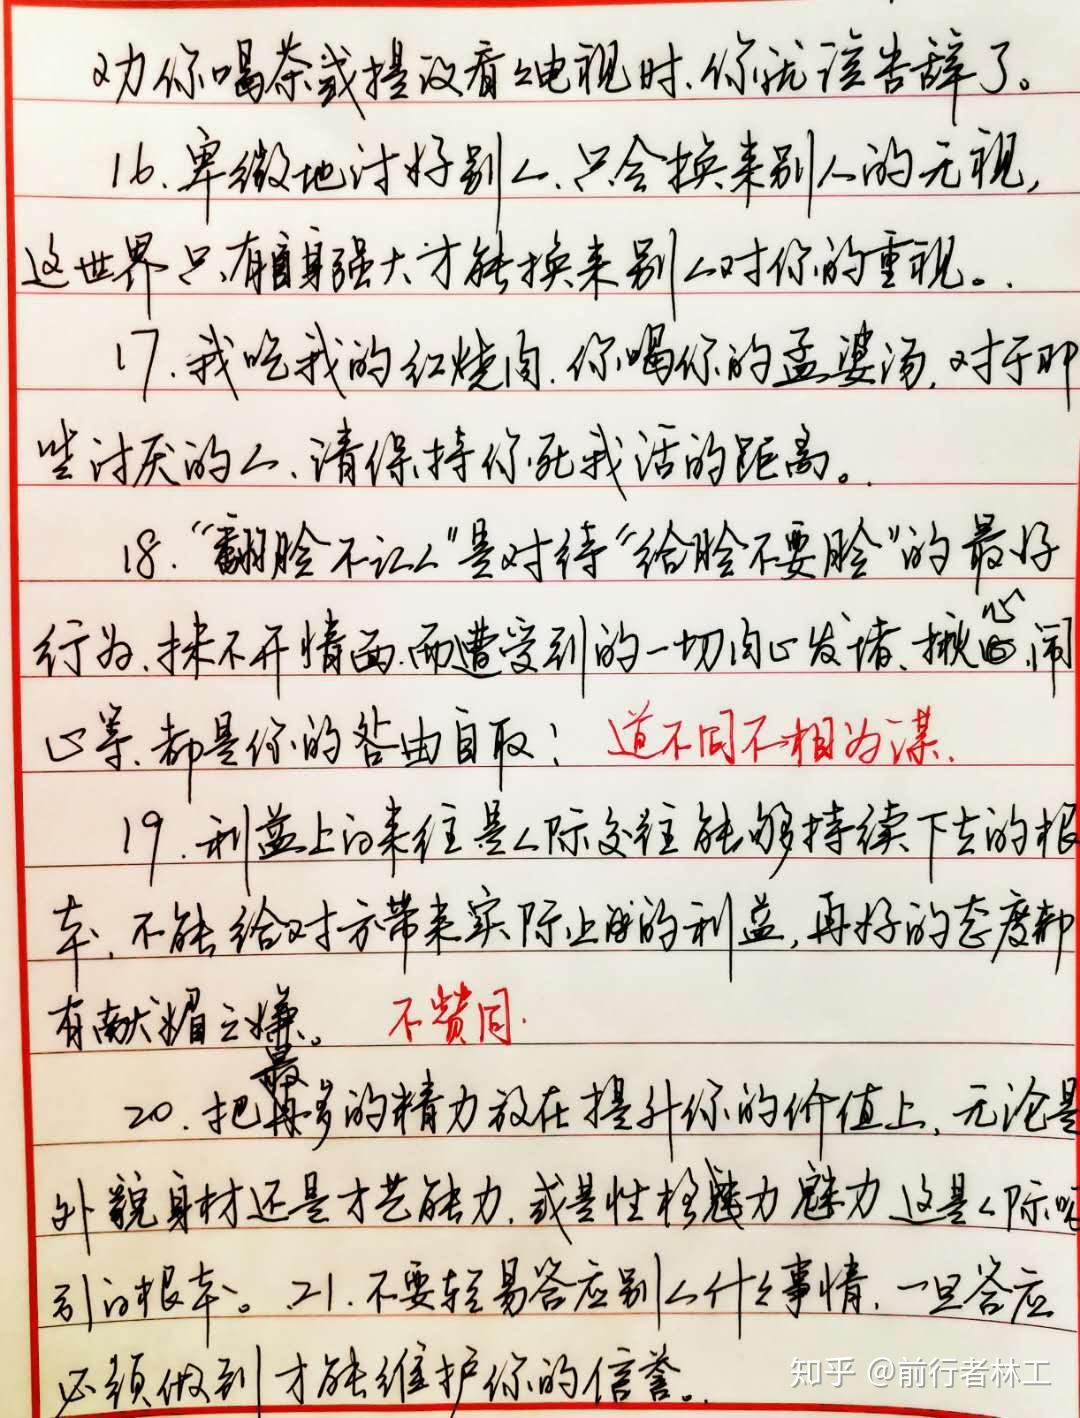 劝你喝茶或提议看看电视时、你就该告辞了。
16.卑微地讨好别人、只会换来别人的无视,
这世界只有自身强大才能换来别人对你的重视。
17.我吃我的红烧肉.你喝你的孟婆汤,对于那
些讨厌的人、请保持你死我活的距离。
18.“翻脸不认人”是对待“给脸不要脸”的最好
行为、抹不开情面.而遭受到的一切内心发堵、揪心、闹
心等、都是你的咎由自取; 道不同不相为谋.
19.利益上的来往是人际交往能够持续下去的根
本,不能给对方带来实际上的利益,再好的态度都
有献媚之嫌。 不赞同.
20.把最多的精力放在提升你的价值上,无论是
外貌身材还是才艺能力,或是性格魅力 这是人际吸
引的根本。21.不要轻易答应别人什么事情,一旦答应
必须做到才能维护你的信誉。
知乎 @前行者林工